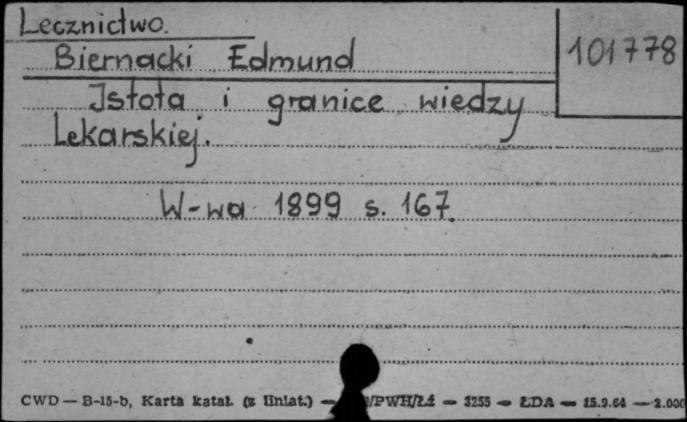 Lecznictwo.
Biernacki Edmund
101778
Istota i granice wiedzy
Lekarskiej.
W-wa 1899 s. 167.
CWD — B-15-b, Karta katal. (z liniat.) — /PWH/Łź — 3255 — ŁDA — 15.9.64 — 2.000